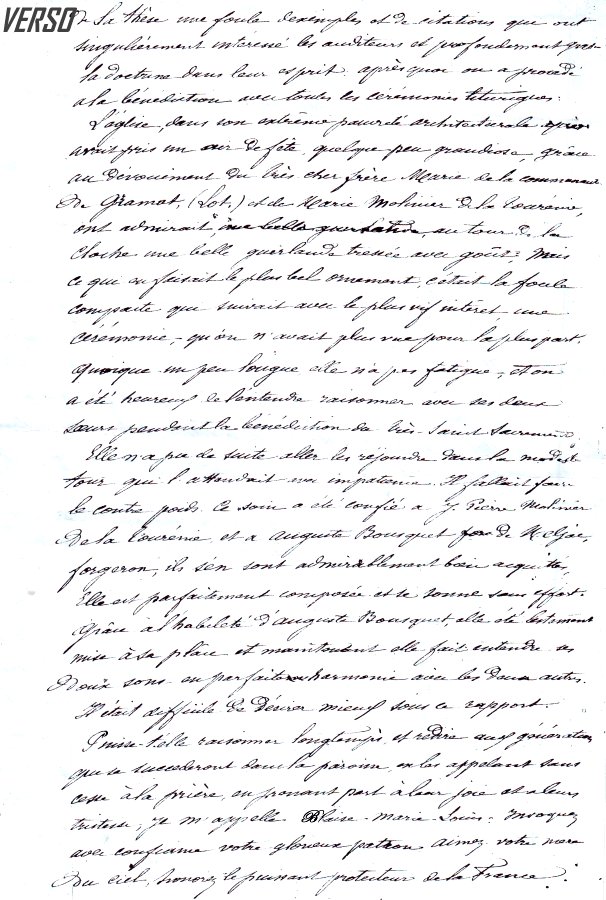 VERSO
de sa thèse une foule d'exemples et de citations que ont
singulièrement intéressé les auditeurs et profondement gravé
la doctrine dans leur esprit. après quoi on a procédé
a la bénédiction avec toutes les cérémonies liturgiques.
L'église, dans son extrême pauvreté architecturale
avait pris un air de fête, quelque peu grandiose, grâce
au dévouement du très cher frère Marie de la commune
de Gramat, (Lot,) et de Marie Molinier de la Tourénie,
ont admirait une belle guirlande, au tour de la
cloche une belle guirlande tressée avec goût. Mais
ce qui en faisait le plus bel ornement, c'était la foule
compacte qui suivait avec le plus vif intéret une
cérémonie, qu'on n'avait plus vue pour la plus part.
quoique un peu longue elle n'a pas fatigué, et on
a été heureux de l'entendre raisonner avec ses deux
sœurs pendant la bénédiction du très Saint Sacrement.
Elle n'a pu de suite aller les rejoindre dans la modeste
tour qui l'attendait avec impatience. Il fallait faire
le contre poids. Ce soin a été confié a J. Pierre Molinier
de la Tourénie, et a Auguste Bousquet de
forgeron, ils s'en sont admirablement bien acquités.
Elle est parfaitement composée et se sonne sans effort.
Grâce à l'habileté d'Auguste Bousquet elle été lestement
mise à sa place et maintenant elle fait entendre ses
doux sons en parfaite harmonie avec les deux autres.
Il était difficile de désirer mieux sous ce rapport.
Puisse-t-elle raisonner longtemps, et redire aux générations
qui se succederont dans la paroisse, en les appelant sans
cesse à la prière, en prenant part à leur joie et a leurs
tristesse, je m'appelle Blaise-Marie-Louis. Invoquez
avec confiance votre glorieux patron aimez votre mere
du ciel, honorez le puissant protecteur de la France.